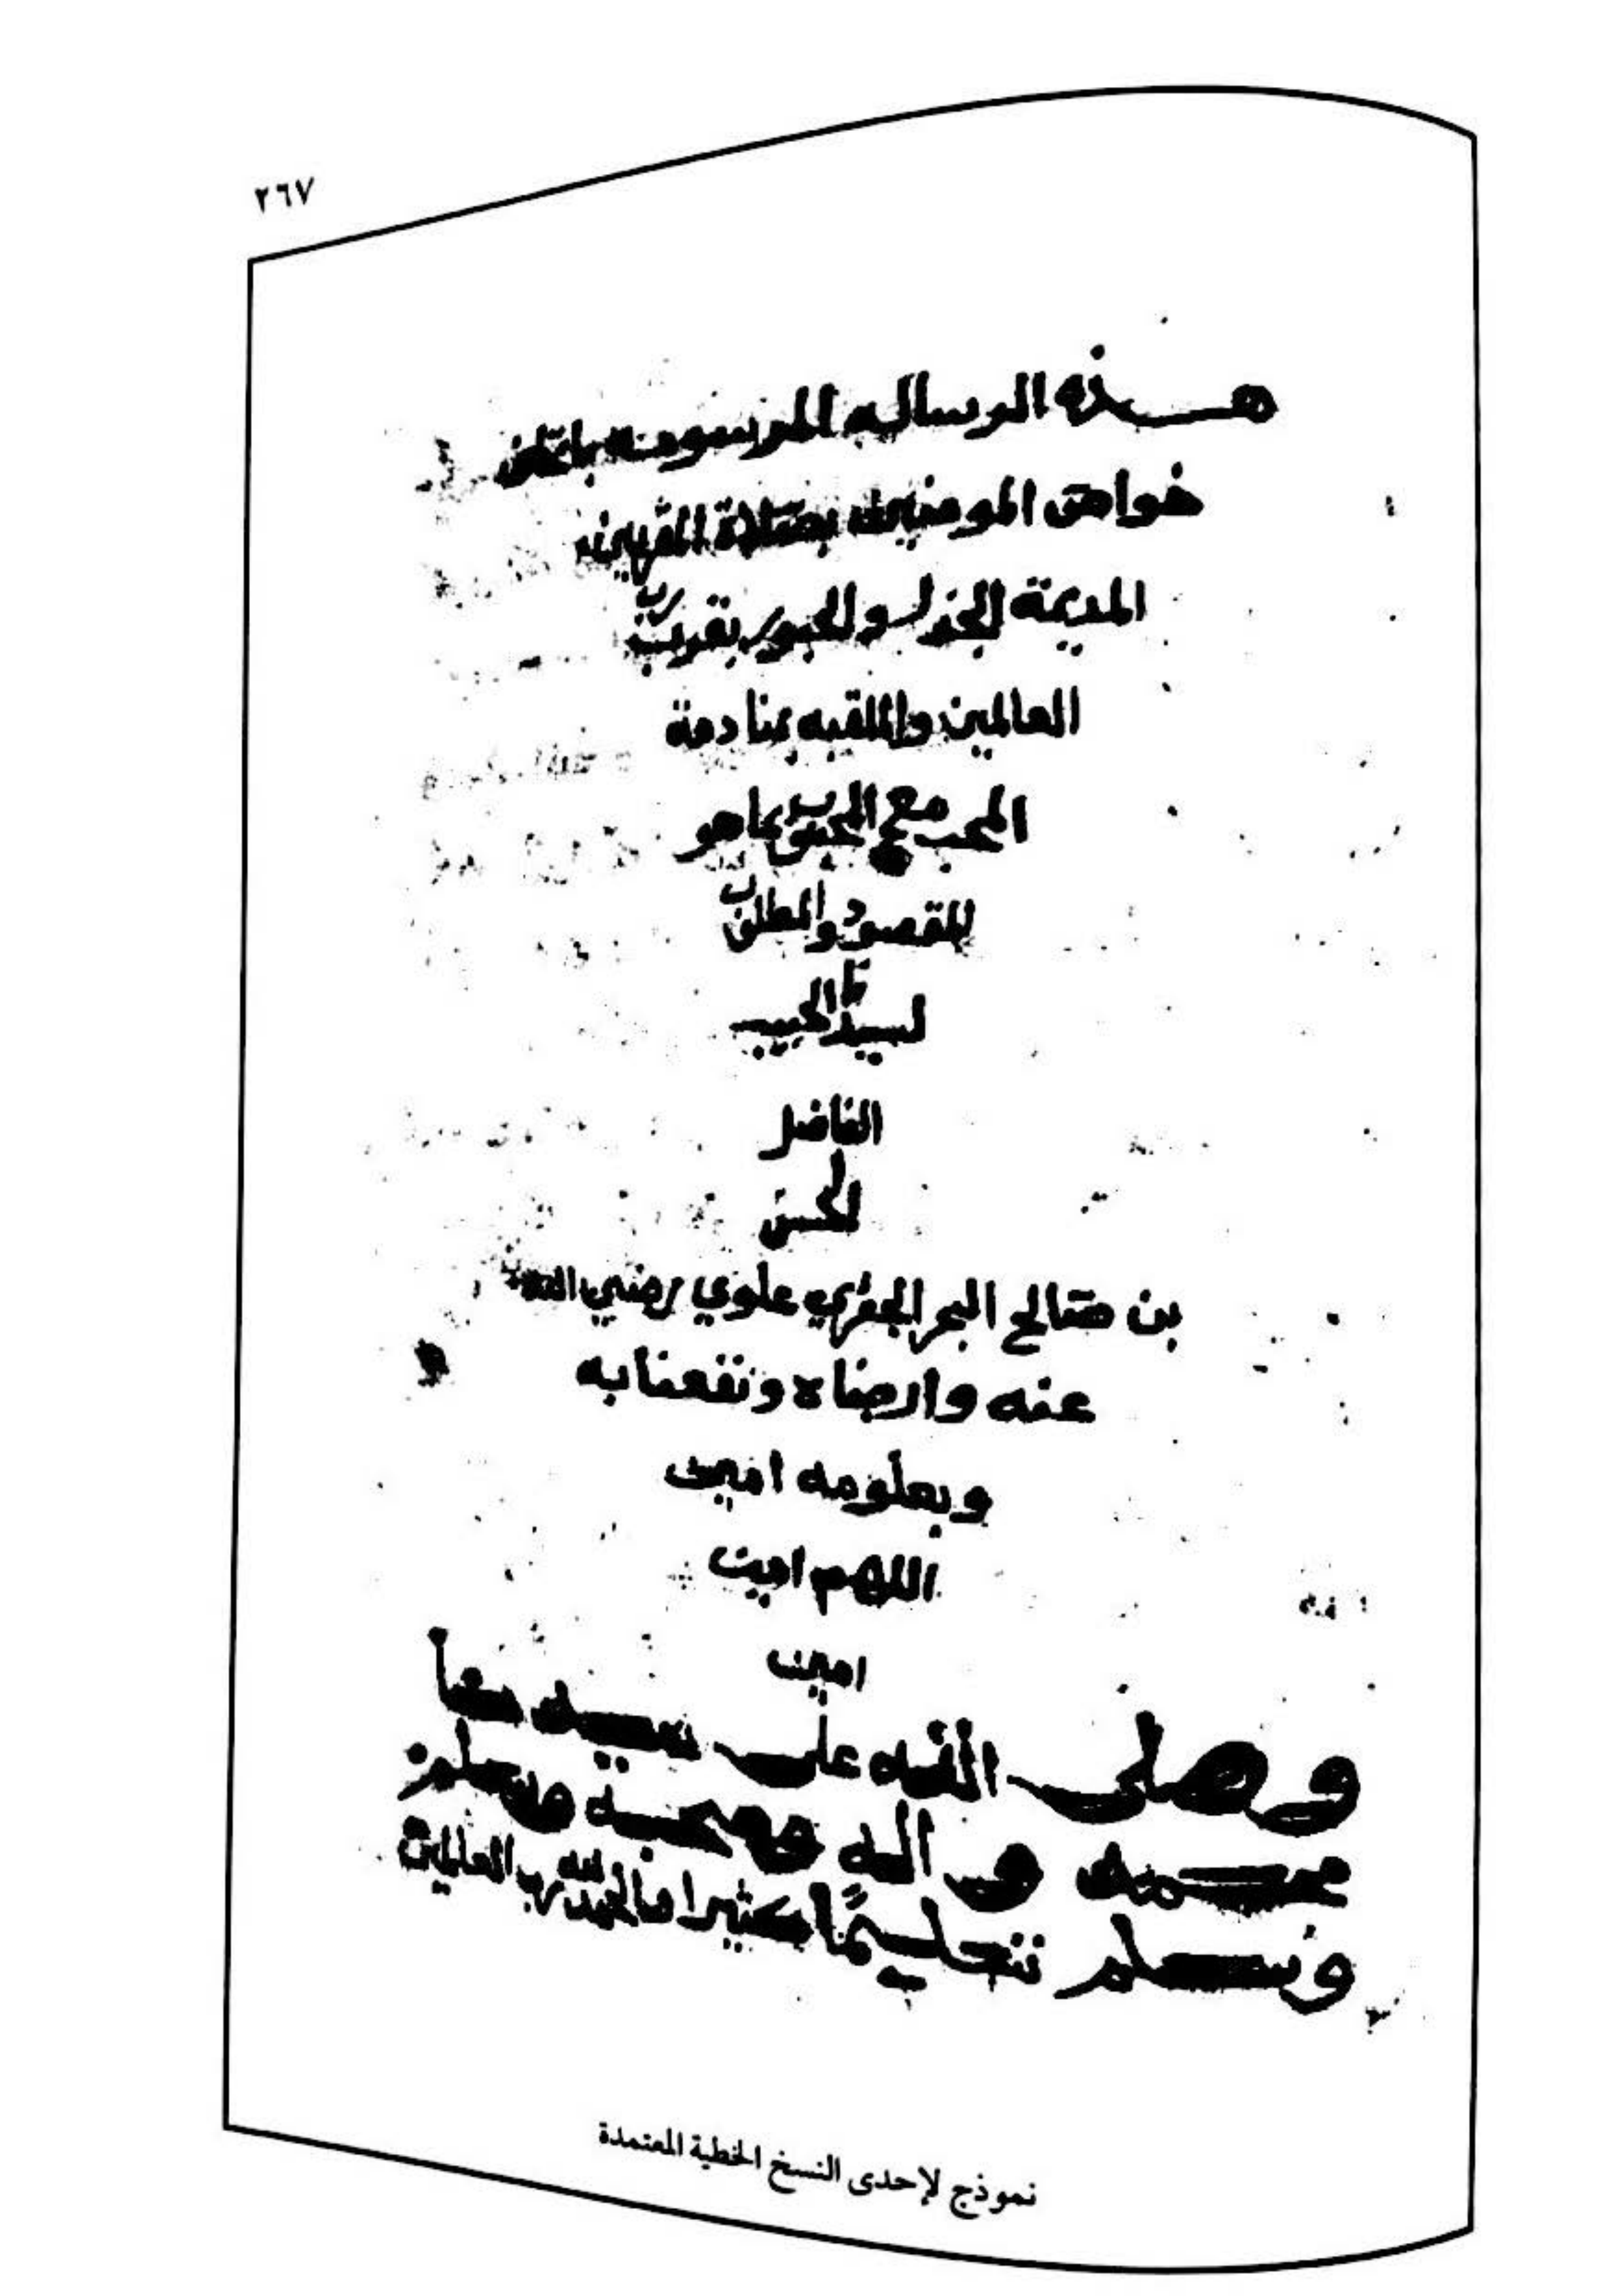 ٢٦٧
هذه الرساله المرسومه
خواص المومنين بصلاة المقربين
المديمة الجذل والحبور بقرب رب
العالمين والملقبه بمنادمة
المحب مع المحبوب بما هو
المقصود والمطلوب
لسيدنا الحبيب
الفاضل
الحسن
بن صالح البحر الجفري علوي رضي الله
عنه وارضاه ونفعنا به
وبعلومه امين
اللهم امين
امين
وصلى الله على سيدنا
محمد و اله وصحبه وسلم
وسلم تسليمًا كثيرا والحمد لله رب العالمين
نموذج لإحدى النسخ الخطية المعتمدة